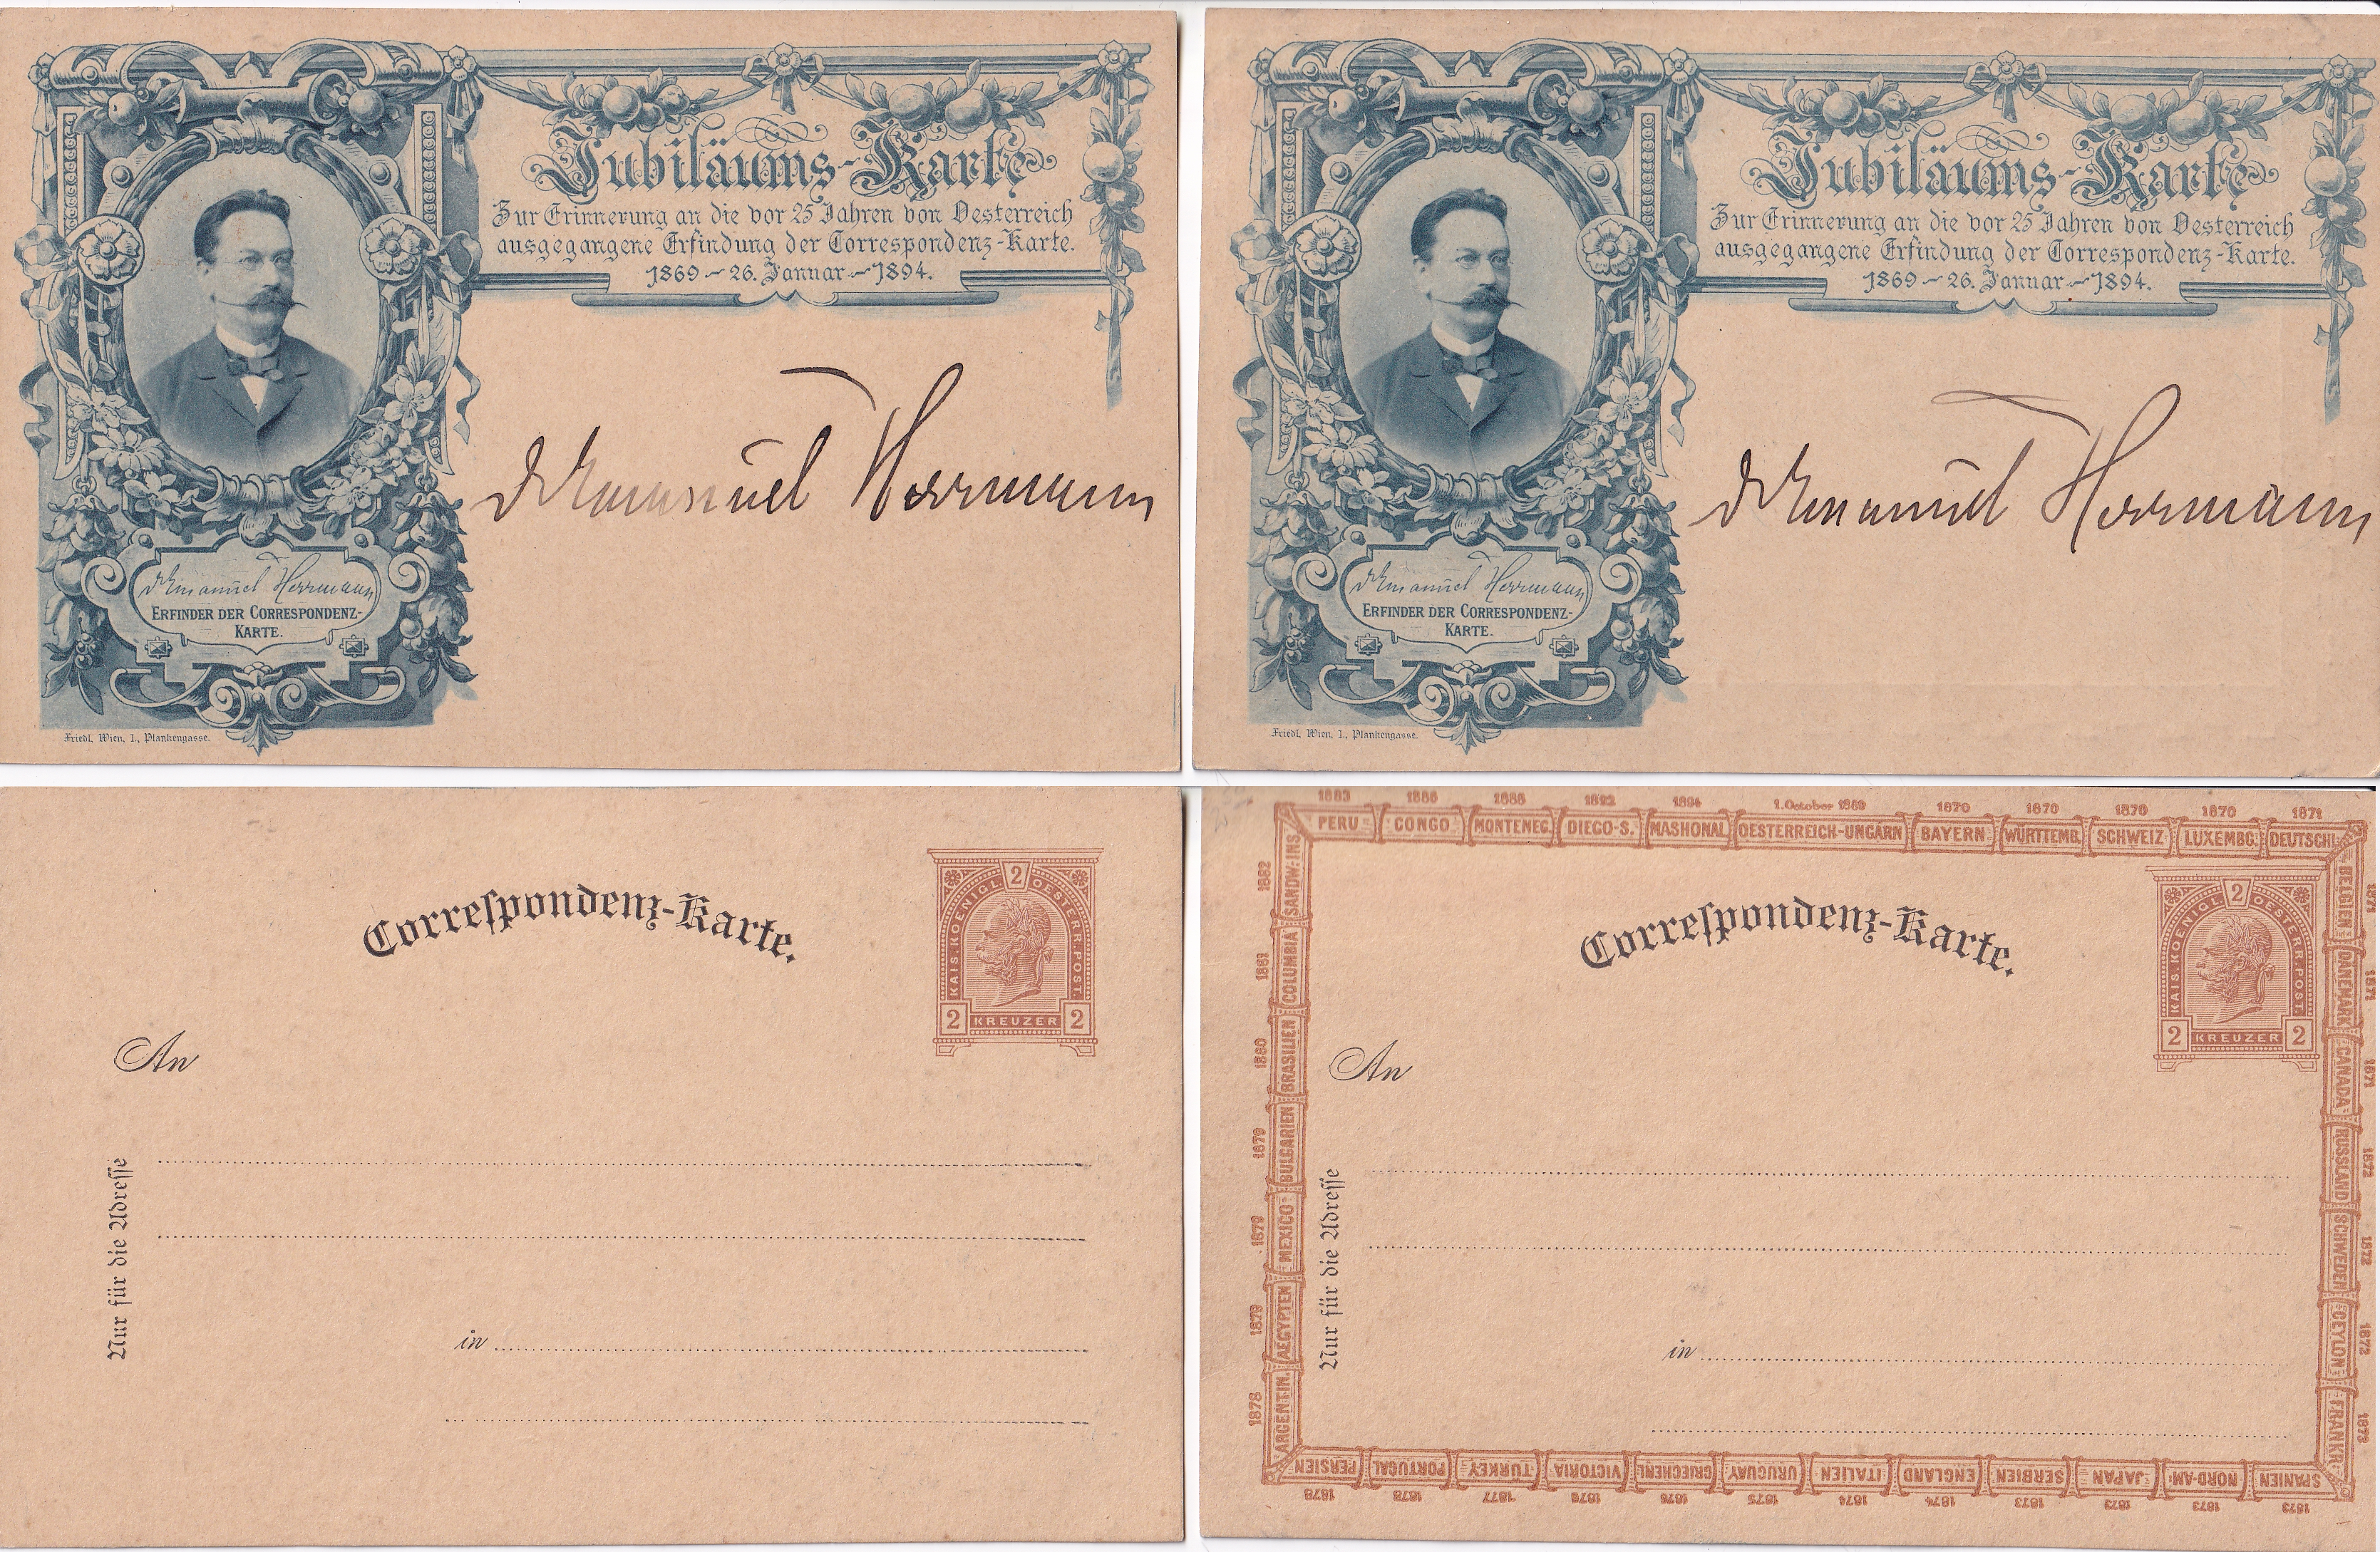 Jubiläums-Karte
Zur Erinnerung an die vor 25 Jahren von Oesterreich
ausgegangene Erfindung der Correspondenz-Karte.
1869 - 26. Januar - 1894.
Dr Emanuel Herrmann
Dr Emanuel Herrmann
ERFINDER DER CORRESPONDENZ-
KARTE.
Friedl, Wien, I., Plankengasse.
Jubiläums-Karte
Zur Erinnerung an die vor 25 Jahren von Oesterreich
ausgegangene Erfindung der Correspondenz-Karte.
1869 - 26. Januar - 1894.
Dr Emanuel Herrmann
Dr Emanuel Herrmann
ERFINDER DER CORRESPONDENZ-
KARTE.
Friedl, Wien, I., Plankengasse.
Correſpondenz-Karte.
2
KAIS. KOENIGL. OESTERR. POST.
2 KREUZER 2
An
Nur für die Adreſſe
in
1883 1886 1888 1892 1894 1. October 1869 1870 1870 1870 1870 1871
PERU CONGO MONTENEG. DIEGO-S. MASHONAL OESTERREICH-UNGARN BAYERN WÜRTTEMB. SCHWEIZ LUXEMBG. DEUTSCHL.
BELGIEN DÄNEMARK CANADA RUSSLAND SCHWEDEN CEYLON FRANKR.
1871 1871 1871 1872 1872 1872 1873
SPANIEN NORD-AM. JAPAN SERBIEN ENGLAND ITALIEN URUGUAY GRIECHENL. VICTORIA TÜRKEY PORTUGAL PERSIEN
1873 1873 1873 1873 1874 1874 1875 1876 1876 1877 1878 1878
ARGENTIN. AEGYPTEN MEXICO BULGARIEN BRASILIEN COLUMBIA SANDW. INS.
1878 1879 1879 1879 1880 1881 1882
Correſpondenz-Karte.
2
KAIS. KOENIGL. OESTERR. POST.
2 KREUZER 2
An
Nur für die Adreſſe
in